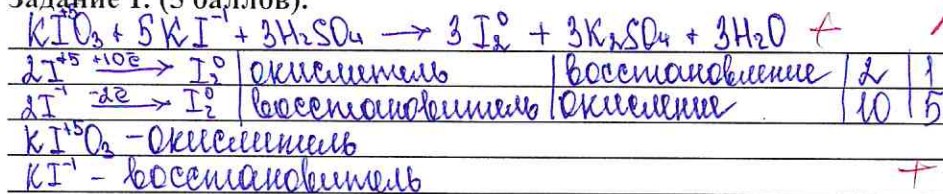 Задание 1. (5 баллов).
KI⁺⁵O₃ + 5KI⁻¹ + 3H₂SO₄ → 3I₂⁰ + 3K₂SO₄ + 3H₂O +
2I⁺⁵ +10ē → I₂⁰ | окислитель | восстановление | 2 | 1
2I⁻¹ -2ē → I₂⁰ | восстановитель | окисление | 10 | 5
KI⁺⁵O₃ - окислитель
KI⁻¹ - восстановитель +